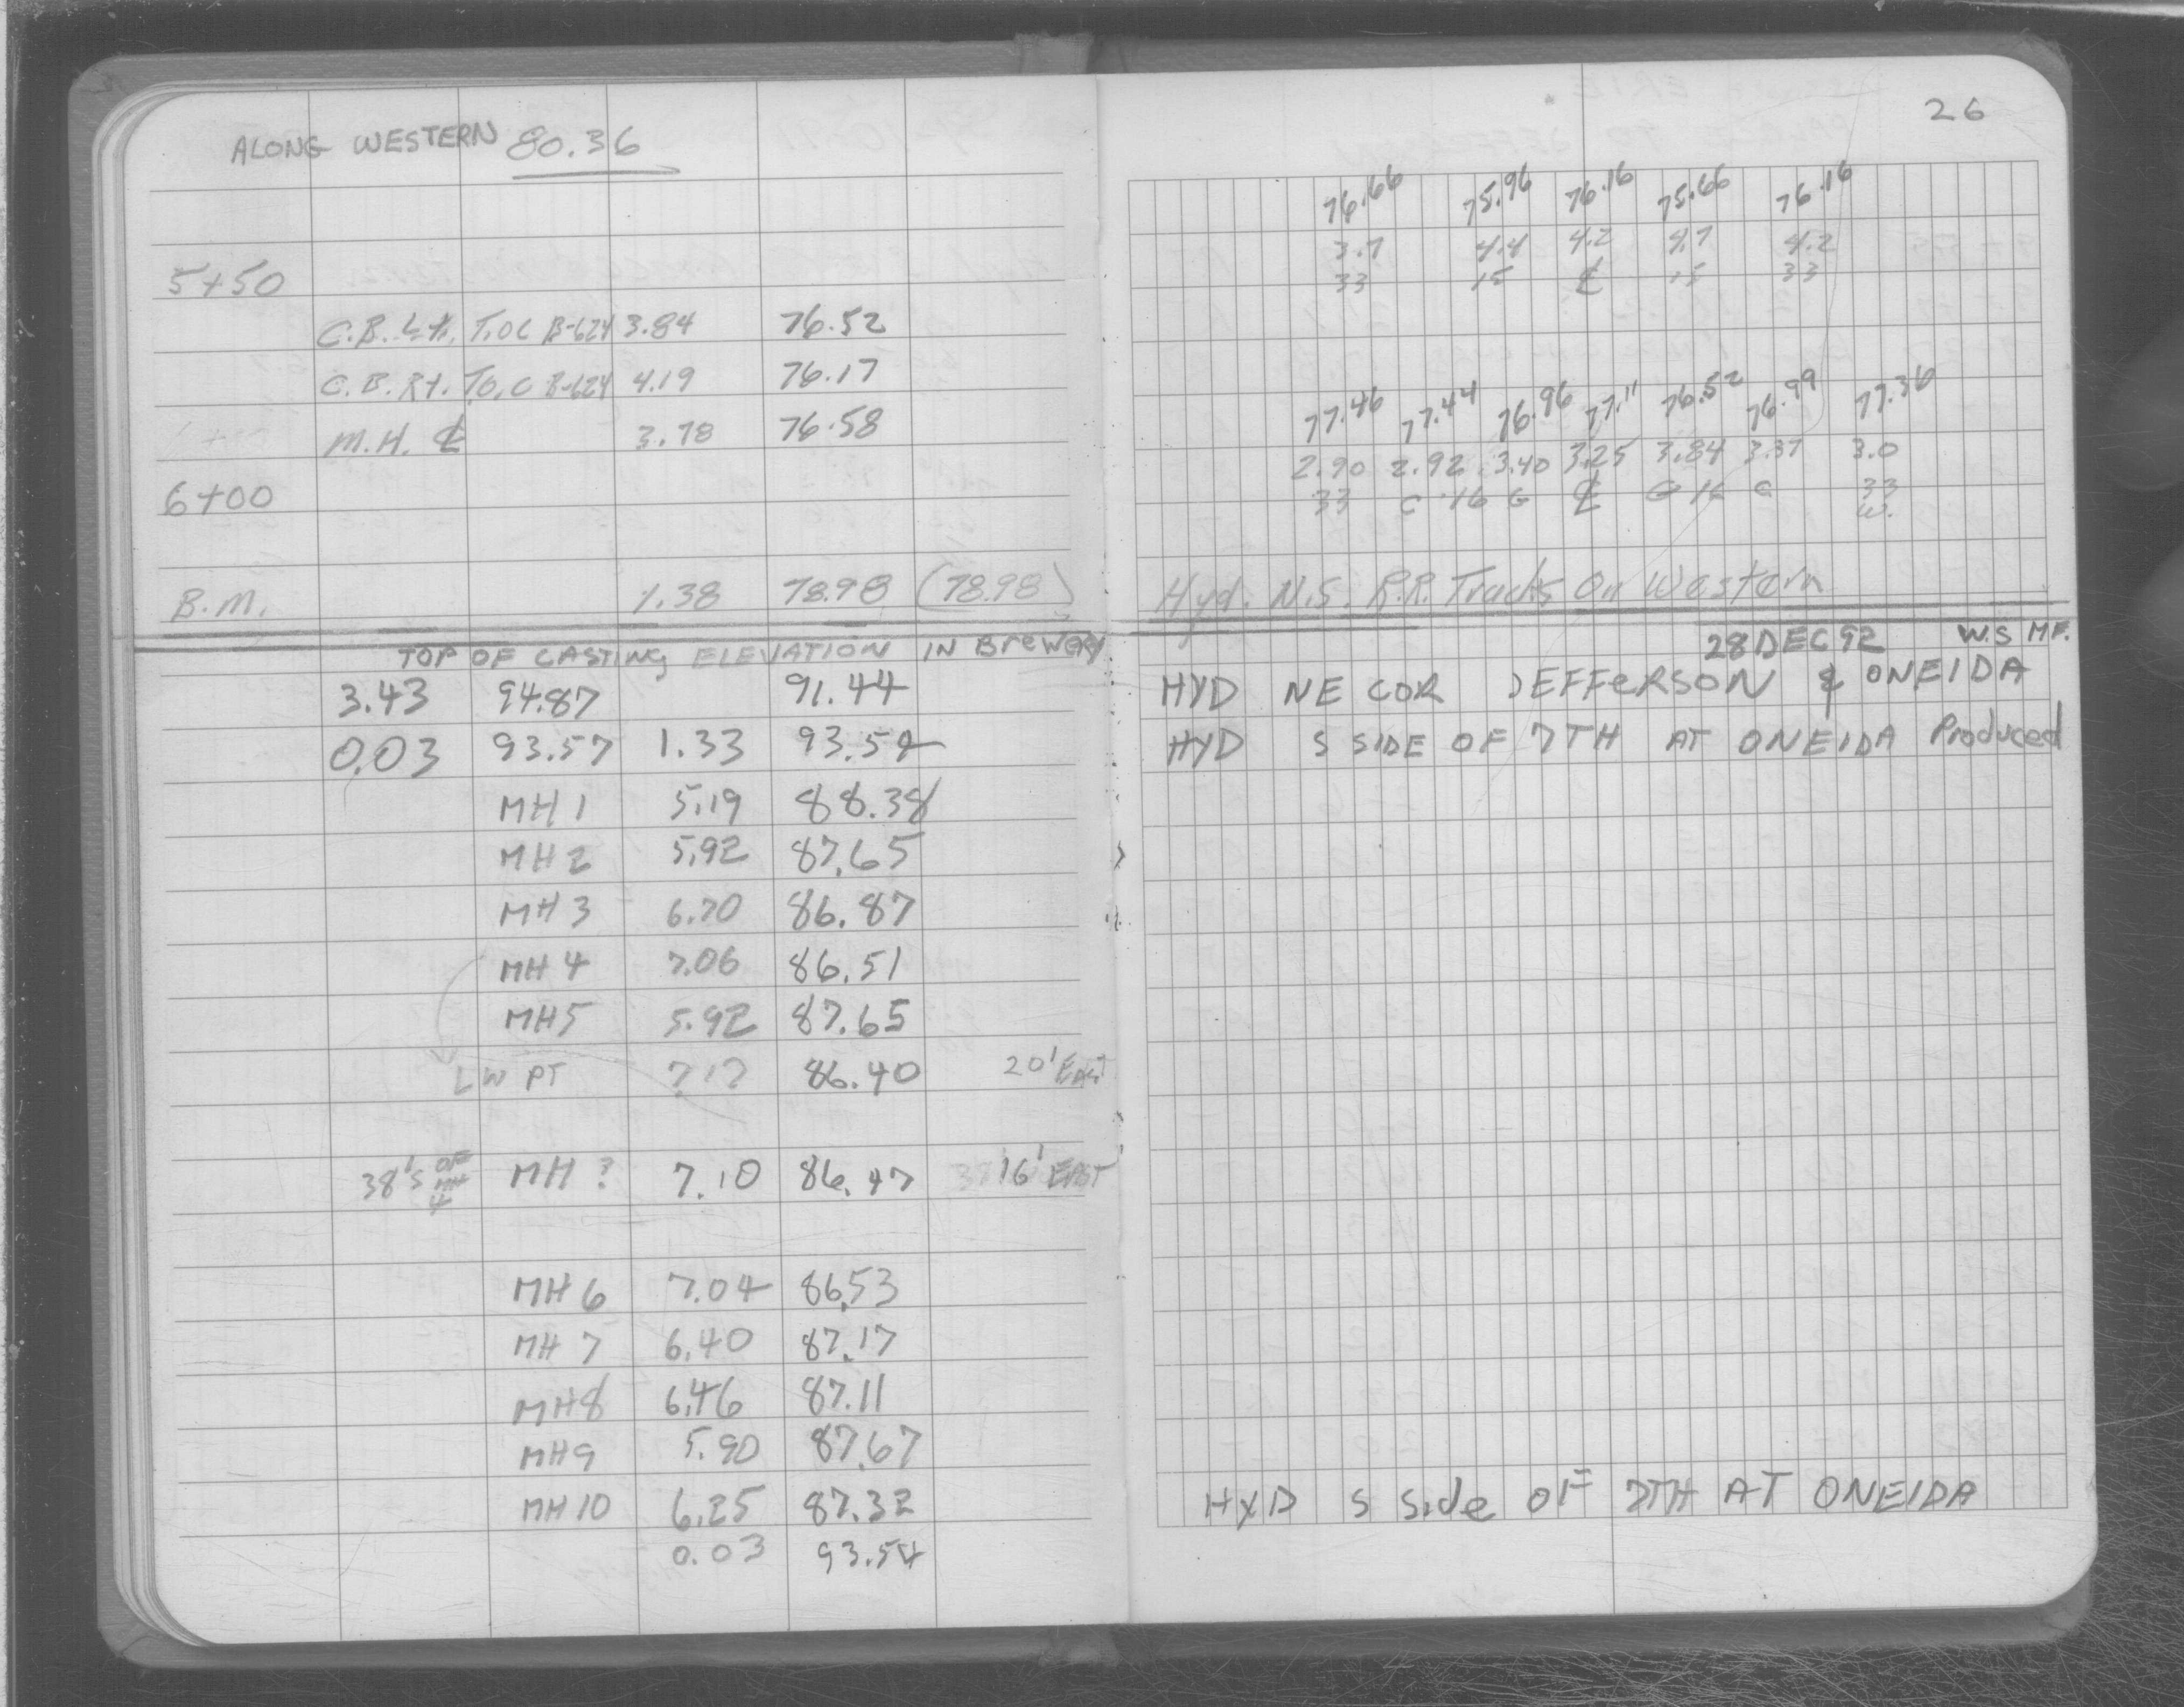 ALONG WESTERN 80.36
5+50
C.B. Lt. T.O.C B-624 3.84 76.52
C.B. Rt. T.O.C B-624 4.19 76.17
M.H. ℄ 3.78 76.58
6+00
B.M. 1.38 78.98 (78.98)
TOP OF CASTING ELEVATION IN BREWERY
3.43 94.87 91.44
0.03 93.57 1.33 93.54
MH 1 5.19 88.38
MH 2 5.92 87.65
MH 3 6.70 86.87
MH 4 7.06 86.51
MH5 5.92 87.65
LW PT 7.17 86.40 20' EAST
38' S OF MH 4 MH ? 7.10 86.47 16' EAST
MH 6 7.04 86.53
MH 7 6.40 87.17
MH8 6.46 87.11
MH9 5.90 87.67
MH 10 6.25 87.32
0.03 93.54
26
76.66 75.96 76.16 75.66 76.16
3.7 4.4 4.2 4.7 4.2
33 15 ℄ 15 33
77.46 77.44 76.96 77.11 76.52 76.99 77.36
2.90 2.92 3.40 3.25 3.84 3.37 3.0
33 C 16 G ℄ G 16 C 33
W.
Hyd. N.S. R.R. Tracks On Western
28 DEC 92 W.S MF.
HYD NE COR JEFFERSON & ONEIDA
HYD S SIDE OF 7TH AT ONEIDA Produced
HYD S Side OF 7TH AT ONEIDA